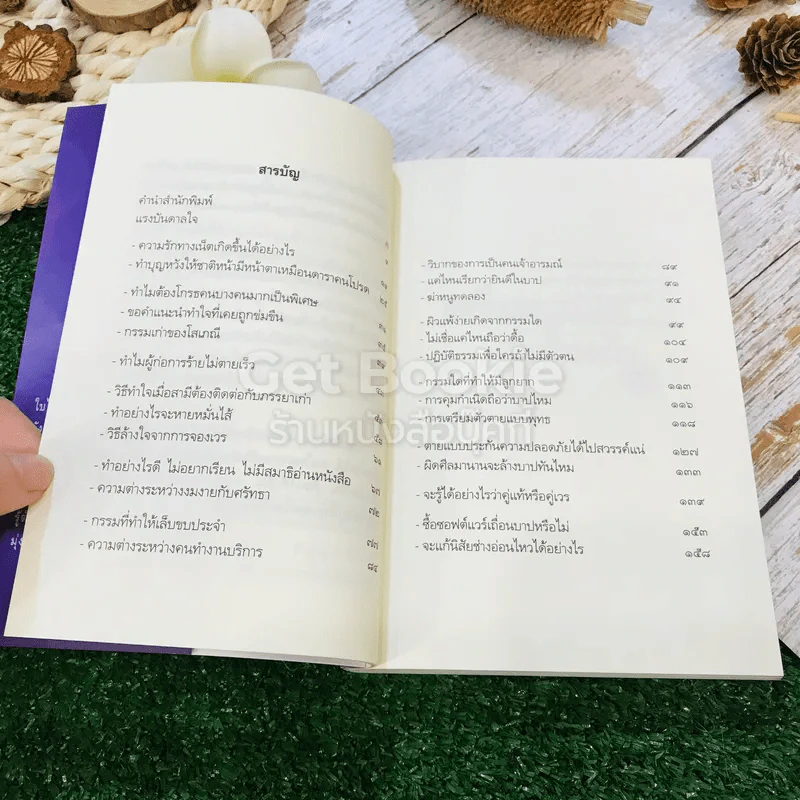 สารบัญ
คำนำสำนักพิมพ์
แรงบันดาลใจ
- ความรักทางเน็ตเกิดขึ้นได้อย่างไร
- ทำบุญหวังให้ชาติหน้ามีหน้าตาเหมือนดาราคนโปรด
- ทำไมต้องโกรธคนบางคนมากเป็นพิเศษ ๒๕
- ขอคำแนะนำทำใจที่เคยถูกข่มขืน
- กรรมเก่าของโสเภณี
- ทำไมผู้ก่อการร้ายไม่ตายเร็ว
- วิธีทำใจเมื่อสามีต้องติดต่อกับภรรยาเก่า
- ทำอย่างไรจะหายหมั่นไส้
- วิธีล้างใจจากการจองเวร
- ทำอย่างไรดี ไม่อยากเรียน ไม่มีสมาธิอ่านหนังสือ ๖๑
- ความต่างระหว่างงมงายกับศรัทธา ๖๗
- กรรมที่ทำให้เล็บขบประจำ ๗๒
- ความต่างระหว่างคนทำงานบริการ ๗๗
๘๔
- วิบากของการเป็นคนเจ้าอารมณ์ ๘๙
- แค่ไหนเรียกว่ายินดีในบาป ๙๑
- ฆ่าหนูทดลอง ๙๔
- ผิวแพ้ง่ายเกิดจากกรรมใด ๙๙
- ไม่เชื่อแค่ไหนถือว่าดื้อ ๑๐๔
- ปฏิบัติธรรมเพื่อใครถ้าไม่มีตัวตน ๑๐๙
- กรรมใดที่ทำให้มีลูกยาก ๑๑๓
- การคุมกำเนิดถือว่าบาปไหม ๑๑๖
- การเตรียมตัวตายแบบพุทธ ๑๑๘
- ตายแบบประกันความปลอดภัยได้ไปสวรรค์แน่ ๑๒๗
- ผิดศีลมานานจะล้างบาปทันไหม ๑๓๓
- จะรู้ได้อย่างไรว่าคู่แท้หรือคู่เวร ๑๓๙
- ซื้อซอฟต์แวร์เถื่อนบาปหรือไม่ ๑๕๓
- จะแก้นิสัยช่างอ่อนไหวได้อย่างไร ๑๕๘
Get Bookie
ร้านหนังสือบุ๊คกี้